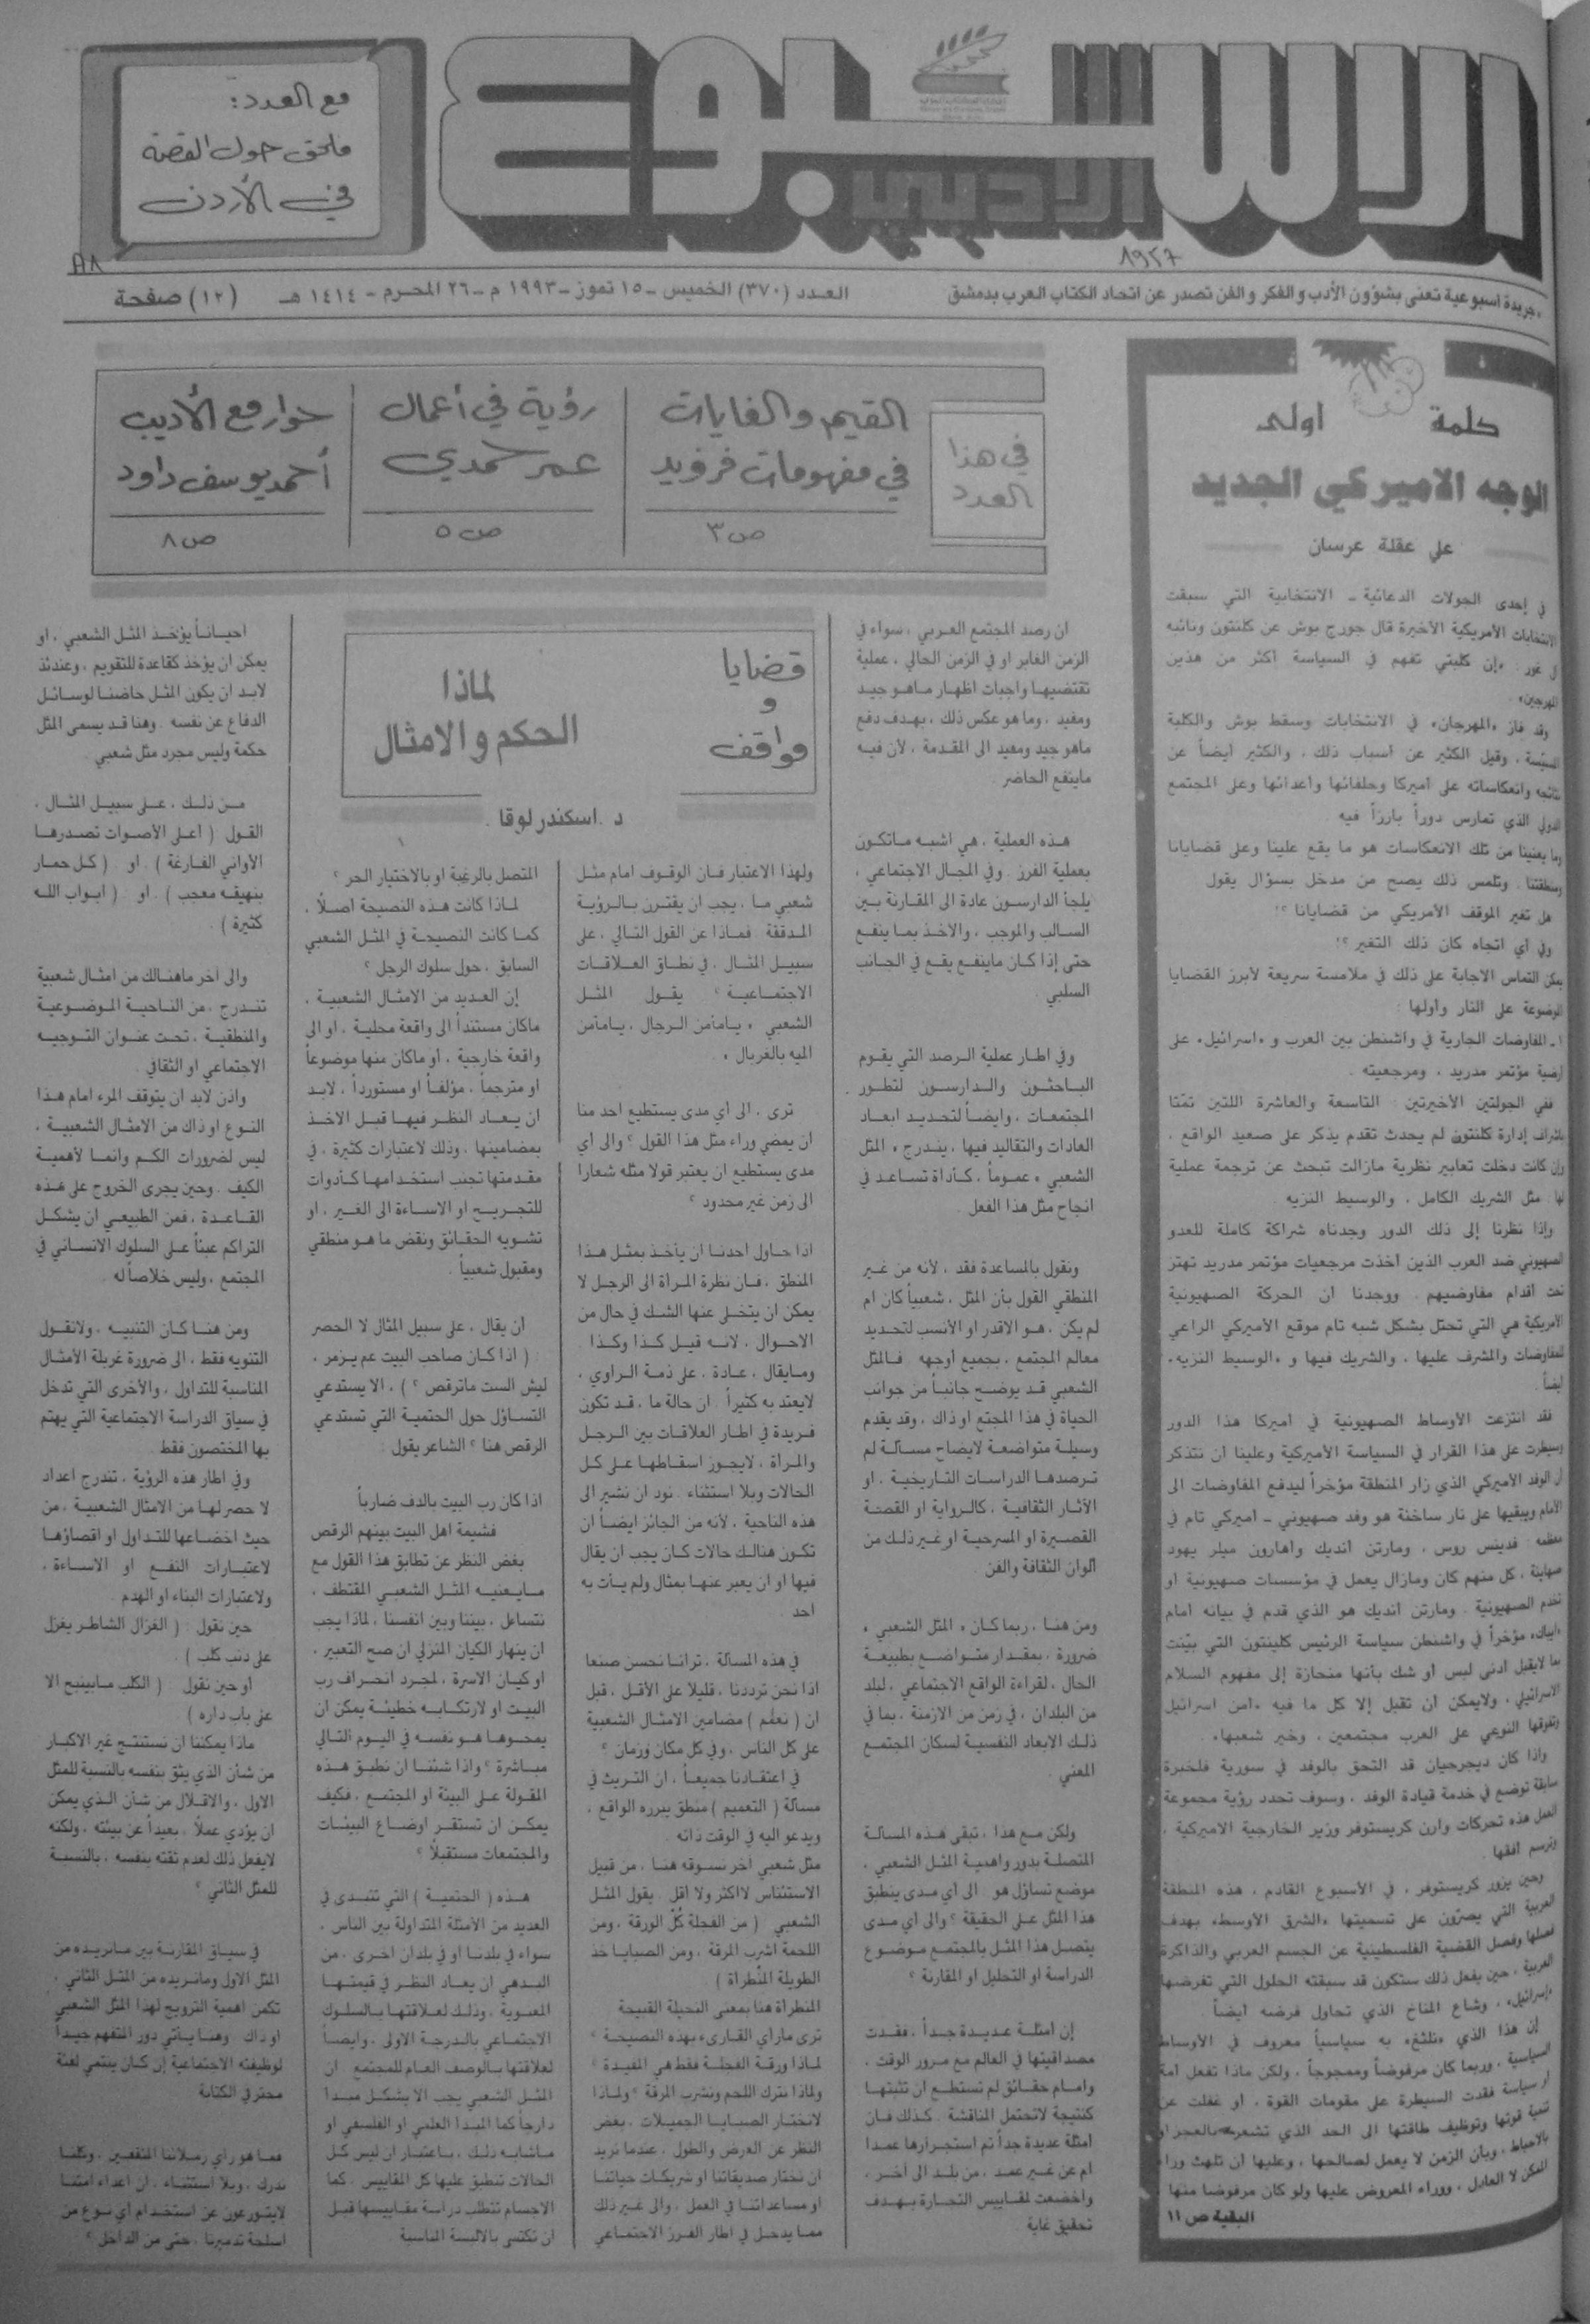 الأسبوع الأدبي
مع العدد:
ملحق حول القصة
في الأردن
جريدة اسبوعية تعنى بشؤون الأدب والفكر والفن تصدر عن اتحاد الكتاب العرب بدمشق
العدد (٣٧٠) الخميس - ١٥ تموز - ١٩٩٣ م - ٢٦ المحرم - ١٤١٤ هـ
(١٢) صفحة
في هذا
العدد
القيم والغايات
في مفهومات فرويد
ص ٣
رؤية في أعمال
عمر حمدي
ص ٥
حوار مع الأديب
أحمد يوسف داود
ص ٨
كلمة أولى
الوجه الاميركي الجديد
علي عقلة عرسان
في إحدى الجولات الدعائية - الانتخابية التي سبقت
الانتخابات الأمريكية الأخيرة قال جورج بوش عن كلنتون ونائبه
آل غور : «إن كلبتي تفهم في السياسة أكثر من هذين
المهرجين»
وقد فاز «المهرجان» في الانتخابات وسقط بوش والكلبة
المسيّسة ، وقيل الكثير عن أسباب ذلك ، والكثير أيضاً عن
نتائجه وانعكاساته على أميركا وحلفائها وأعدائها وعلى المجتمع
الدولي الذي تمارس دوراً بارزاً فيه
وما يعنينا من تلك الانعكاسات هو ما يقع علينا وعلى قضايانا
ومنطقتنا . وتلمس ذلك يصح من مدخل بسؤال يقول
هل تغير الموقف الأمريكي من قضايانا ؟!
وفي أي اتجاه كان ذلك التغير ؟!
يمكن التماس الاجابة على ذلك في ملامسة سريعة لأبرز القضايا
الموضوعة على النار وأولها :
١- المفاوضات الجارية في واشنطن بين العرب و «اسرائيل» على
أرضية مؤتمر مدريد ، ومرجعيته .
ففي الجولتين الأخيرتين : التاسعة والعاشرة اللتين تمّتا
باشراف إدارة كلنتون لم يحدث تقدم يذكر على صعيد الواقع ،
وإن كانت دخلت تعابير نظرية مازالت تبحث عن ترجمة عملية
لها . مثل الشريك الكامل ، والوسيط النزيه .
وإذا نظرنا إلى ذلك الدور وجدناه شراكة كاملة للعدو
الصهيوني ضد العرب الذين أخذت مرجعيات مؤتمر مدريد تهتز
تحت أقدام مفاوضيهم . ووجدنا أن الحركة الصهيونية
الأمريكية هي التي تحتل بشكل شبه تام موقع الأميركي الراعي
للمفاوضات والمشرف عليها ، والشريك فيها و «الوسيط النزيه»
أيضاً .
فقد انتزعت الأوساط الصهيونية في أميركا هذا الدور
وسيطرت على هذا القرار في السياسة الأميركية وعلينا أن نتذكر
أن الوفد الأميركي الذي زار المنطقة مؤخراً ليدفع المفاوضات الى
الأمام ويبقيها على نار ساخنة هو وفد صهيوني - أميركي تام في
معظمه : فدينس روس ، ومارتن أنديك وأهارون ميلر يهود
صهاينة ، كل منهم كان ومازال يعمل في مؤسسات صهيونية أو
تخدم الصهيونية . ومارتن أنديك هو الذي قدم في بيانه أمام
«ايباك» مؤخراً في واشنطن سياسة الرئيس كلينتون التي بيّنت
بما لايقبل أدنى لبس أو شك بأنها منحازة إلى مفهوم السلام
الاسرائيلي ، ولايمكن أن تقبل إلا كل ما فيه «أمن اسرائيل
وتفوقها النوعي على العرب مجتمعين ، وخير شعبها» .
وإذا كان ديجرجيان قد التحق بالوفد في سورية فلخبرة
سابقة توضع في خدمة قيادة الوفد ، وسوف تحدد رؤية مجموعة
العمل هذه تحركات وارن كريستوفر وزير الخارجية الاميركية ،
وترسم أفقها .
وحين يزور كريستوفر ، في الأسبوع القادم ، هذه المنطقة
العربية التي يصرّون على تسميتها «الشرق الأوسط» بهدف
فصلها وفصل القضية الفلسطينية عن الجسم العربي والذاكرة
العربية ، حين يفعل ذلك ستكون قد سبقته الحلول التي تفرضها
«إسرائيل» ، وشاع المناخ الذي تحاول فرضه أيضاً
إن هذا الذي «نلثغ» به سياسياً معروف في الأوساط
السياسية ، وربما كان مرفوضاً وممجوجاً ، ولكن ماذا تفعل أمة
أو سياسة فقدت السيطرة على مقومات القوة ، أو غفلت عن
تنمية قوتها وتوظيف طاقتها الى الحد الذي تشعر بالعجز أو
بالاحباط ، وبأن الزمن لا يعمل لصالحها ، وعليها أن تلهث وراء
الممكن لا العادل ، ووراء المعروض عليها ولو كان مرفوضا منها
البقية ص ١١
قضايا
و
مواقف
لماذا
الحكم والامثال
د . اسكندر لوقا .
ان رصد المجتمع العربي ، سواء في
الزمن الغابر او في الزمن الحالي ، عملية
تقتضيها واجبات اظهار ماهو جيد
ومفيد ، وما هو عكس ذلك ، بهدف دفع
ماهو جيد ومفيد الى المقدمة ، لأن فيه
ماينفع الحاضر .
هذه العملية ، هي اشبه ماتكون
بعملية الفرز . وفي المجال الاجتماعي ،
يلجأ الدارسون عادة الى المقارنة بين
السالب والموجب ، والاخذ بما ينفع
حتى إذا كان ماينفع يقع في الجانب
السلبي .
وفي اطار عملية الرصد التي يقوم
الباحثون والدارسون لتطور
المجتمعات ، وايضاً لتحديد ابعاد
العادات والتقاليد فيها ، يندرج « المثل
الشعبي » عموماً ، كأداة تساعد في
انجاح مثل هذا الفعل .
ونقول بالمساعدة فقد ، لأنه من غير
المنطقي القول بأن المثل ، شعبياً كان ام
لم يكن ، هو الاقدر او الأنسب لتحديد
معالم المجتمع ، بجميع أوجهه . فالمثل
الشعبي قد يوضح جانباً من جوانب
الحياة في هذا المجتمع او ذاك ، وقد يقدم
وسيلة متواضعة لايضاح مسألة لم
ترصدها الدراسات التاريخية ، او
الآثار الثقافية ، كالرواية او القصة
القصيرة او المسرحية او غير ذلك من
ألوان الثقافة والفن .
ومن هنا ، ربما كان « المثل الشعبي »
ضرورة ، بمقدار متواضع بطبيعة
الحال ، لقراءة الواقع الاجتماعي ، لبلد
من البلدان ، في زمن من الازمنة ، بما في
ذلك الابعاد النفسية لسكان المجتمع
المعني .
ولكن مع هذا ، تبقى هذه المسألة
المتصلة بدور واهمية المثل الشعبي ،
موضع تساؤل هو : الى أي مدى ينطبق
هذا المثل على الحقيقة ؟ والى أي مدى
يتصل هذا المثل بالمجتمع موضوع
الدراسة او التحليل او المقارنة ؟
إن أمثلة عديدة جداً ، فقدت
مصداقيتها في العالم مع مرور الوقت ،
وامام حقائق لم تستطع ان تثبتها
كنتيجة لاتحتمل المناقشة . كذلك فان
امثلة عديدة جداً تم استجرارها عمدا
ام عن غير عمد ، من بلد الى آخر ،
وأخضعت لمقاييس التجارة بهدف
تحقيق غاية .
ولهذا الاعتبار فان الوقوف امام مثل
شعبي ما ، يجب ان يقترن بالرؤية
المدققة . فماذا عن القول التالي ، على
سبيل المثال ، في نطاق العلاقات
الاجتماعية ؟ يقول المثل
الشعبي « يامأمن الرجال ، يامأمن
الميه بالغربال »
ترى ، الى أي مدى يستطيع احد منا
ان يمضي وراء مثل هذا القول ؟ والى أي
مدى يستطيع ان يعتبر قولا مثله شعارا
الى زمن غير محدود ؟
اذا حاول أحدنا ان يأخذ بمثل هذا
المنطق ، فان نظرة المرأة الى الرجل لا
يمكن ان يتخلى عنها الشك في حال من
الاحوال ، لانه قيل كذا وكذا .
ومايقال ، عادة ، على ذمة الراوي ،
لايعتد به كثيراً . ان حالة ما ، قد تكون
فريدة في اطار العلاقات بين الرجل
والمرأة ، لايجوز اسقاطها على كل
الحالات وبلا استثناء . نود ان نشير الى
هذه الناحية ، لأنه من الجائز ايضاً ان
تكون هنالك حالات كان يجب ان يقال
فيها او ان يعبر عنها بمثال ولم يأت به
احد .
في هذه المسألة ، ترانا نحسن صنعا
اذا نحن ترددنا ، قليلا على الأقل ، قبل
ان ( نعمّم ) مضامين الامثال الشعبية
على كل الناس ، وفي كل مكان وزمان ؟
في اعتقادنا جميعاً ، ان التريث في
مسألة ( التعميم ) منطق يبرره الواقع ،
ويدعو اليه في الوقت ذاته .
مثل شعبي آخر نسوقه هنا ، من قبيل
الاستئناس لااكثر ولا أقل . يقول المثل
الشعبي : ( من الفجلة كُلْ الورقة ، ومن
اللحمة اشرب المرقة ، ومن الصبايا خذ
الطويلة المنْطراة )
المنطراة هنا بمعنى النحيلة القبيحة
ترى مارأي القارىء بهذه النصيحة ؟
لماذا ورقة الفجلة فقط هي المفيدة ؟
ولماذا نترك اللحم ونشرب المرقة ؟ ولماذا
لانختار الصبايا الجميلات ، بغض
النظر عن العرض والطول ، عندما نريد
ان نختار صديقاتنا او شريكات حياتنا
او مساعداتنا في العمل ، والى غير ذلك
مما يدخل في اطار الفرز الاجتماعي
المتصل بالرغبة او بالاختيار الحر ؟
لماذا كانت هذه النصيحة أصلاً ،
كما كانت النصيحة في المثل الشعبي
السابق ، حول سلوك الرجل ؟
إن العديد من الامثال الشعبية ،
ماكان مستنداً الى واقعة محلية ، او الى
واقعة خارجية ، او ماكان منها موضوعاً
او مترجماً ، مؤلفاً او مستورداً ، لابد
ان يعاد النظر فيها قبل الاخذ
بمضامينها ، وذلك لاعتبارات كثيرة ، في
مقدمتها تجنب استخدامها كأدوات
للتجريح او الاساءة الى الغير ، او
تشويه الحقائق ونقض ما هو منطقي
ومقبول شعبياً .
أن يقال ، على سبيل المثال لا الحصر
: ( اذا كان صاحب البيت عم يزمر ،
ليش الست ماترقص ؟ ) ، الا يستدعي
التساؤل حول الحتمية التي تستدعي
الرقص هنا ؟ الشاعر يقول :
اذا كان رب البيت بالدف ضارباً
فشيمة اهل البيت بينهم الرقص
بغض النظر عن تطابق هذا القول مع
مايعنيه المثل الشعبي المقتطف ،
نتساءل ، بيننا وبين انفسنا ، لماذا يجب
ان ينهار الكيان المنزلي ان صح التعبير ،
او كيان الاسرة ، لمجرد انحراف رب
البيت او لارتكابه خطيئة يمكن ان
يمحوها هو نفسه في اليوم التالي
مباشرة ؟ واذا شئنا ان نطبق هذه
المقولة على البيئة او المجتمع ، فكيف
يمكن ان تستقر اوضاع البيئات
والمجتمعات مستقبلاً ؟
هذه ( الحتمية ) التي تتبدى في
العديد من الأمثلة المتداولة بين الناس ،
سواء في بلدنا او في بلدان اخرى ، من
البدهي ان يعاد النظر في قيمتها
المعنوية ، وذلك لعلاقتها بالسلوك
الاجتماعي بالدرجة الاولى ، وايضاً
لعلاقتها بالوصف العام للمجتمع . ان
المثل الشعبي يجب الا يشكل مبدأ
دارجاً كما المبدأ العلمي او الفلسفي او
ماشابه ذلك ، باعتبار ان ليس كل
الحالات تنطبق عليها كل المقاييس . كما
الاجسام تتطلب دراسة مقاييسها قبل
ان تكتسي بالالبسة المناسبة
احياناً يؤخذ المثل الشعبي ، او
يمكن ان يؤخذ كقاعدة للتقويم ، وعندئذ
لابد ان يكون المثل حاضنا لوسائل
الدفاع عن نفسه . وهنا قد يسمى المثل
حكمة وليس مجرد مثل شعبي .
من ذلك ، على سبيل المثال ،
القول : ( أعلى الأصوات تصدرها
الأواني الفارغة ) . او : ( كل حمار
بنهيقه معجب ) . او : ( ابواب الله
كثيرة ) .
والى آخر ماهنالك من امثال شعبية
تندرج ، من الناحية الموضوعية
والمنطقية ، تحت عنوان التوجيه
الاجتماعي او الثقافي .
واذن لابد ان يتوقف المرء امام هذا
النوع او ذاك من الامثال الشعبية ،
ليس لضرورات الكم وانما لأهمية
الكيف . وحين يجرى الخروج على هذه
القاعدة ، فمن الطبيعي ان يشكل
التراكم عبئاً على السلوك الانساني في
المجتمع ، وليس خلاصاً له .
ومن هنا كان التنبيه ، ولانقول
التنويه فقط ، الى ضرورة غربلة الأمثال
المناسبة للتداول ، والأخرى التي تدخل
في سياق الدراسة الاجتماعية التي يهتم
بها المختصون فقط .
وفي اطار هذه الرؤية ، تندرج اعداد
لا حصر لها من الامثال الشعبية ، من
حيث اخضاعها للتداول او اقصاؤها
لاعتبارات النفع او الاساءة ،
ولاعتبارات البناء او الهدم .
حين نقول : ( الغزال الشاطر يغزل
على دنب كلب ) .
أو حين نقول : ( الكلب مابينبح الا
على باب داره )
ماذا يمكننا ان نستنتج غير الاكبار
من شأن الذي يثق بنفسه بالنسبة للمثل
الاول ، والاقلال من شأن الذي يمكن
ان يؤدي عملاً ، بعيداً عن بيئته ، ولكنه
لايفعل ذلك لعدم ثقته بنفسه ، بالنسبة
للمثل الثاني ؟
في سياق المقارنة بين مانريده من
المثل الاول ومانريده من المثل الثاني ،
تكمن اهمية الترويج لهذا المثل الشعبي
او ذاك . وهنا يأتي دور المتفهم جيداً
لوظيفته الاجتماعية إن كان ينتمي لفئة
محترفي الكتابة
فما هو رأي زملائنا المثقفين ، وكلنا
ندرك ، وبلا استثناء ، ان اعداء امتنا
لايتورعون عن استخدام أي نوع من
اسلحة تدميرنا ، حتى من الداخل ؟